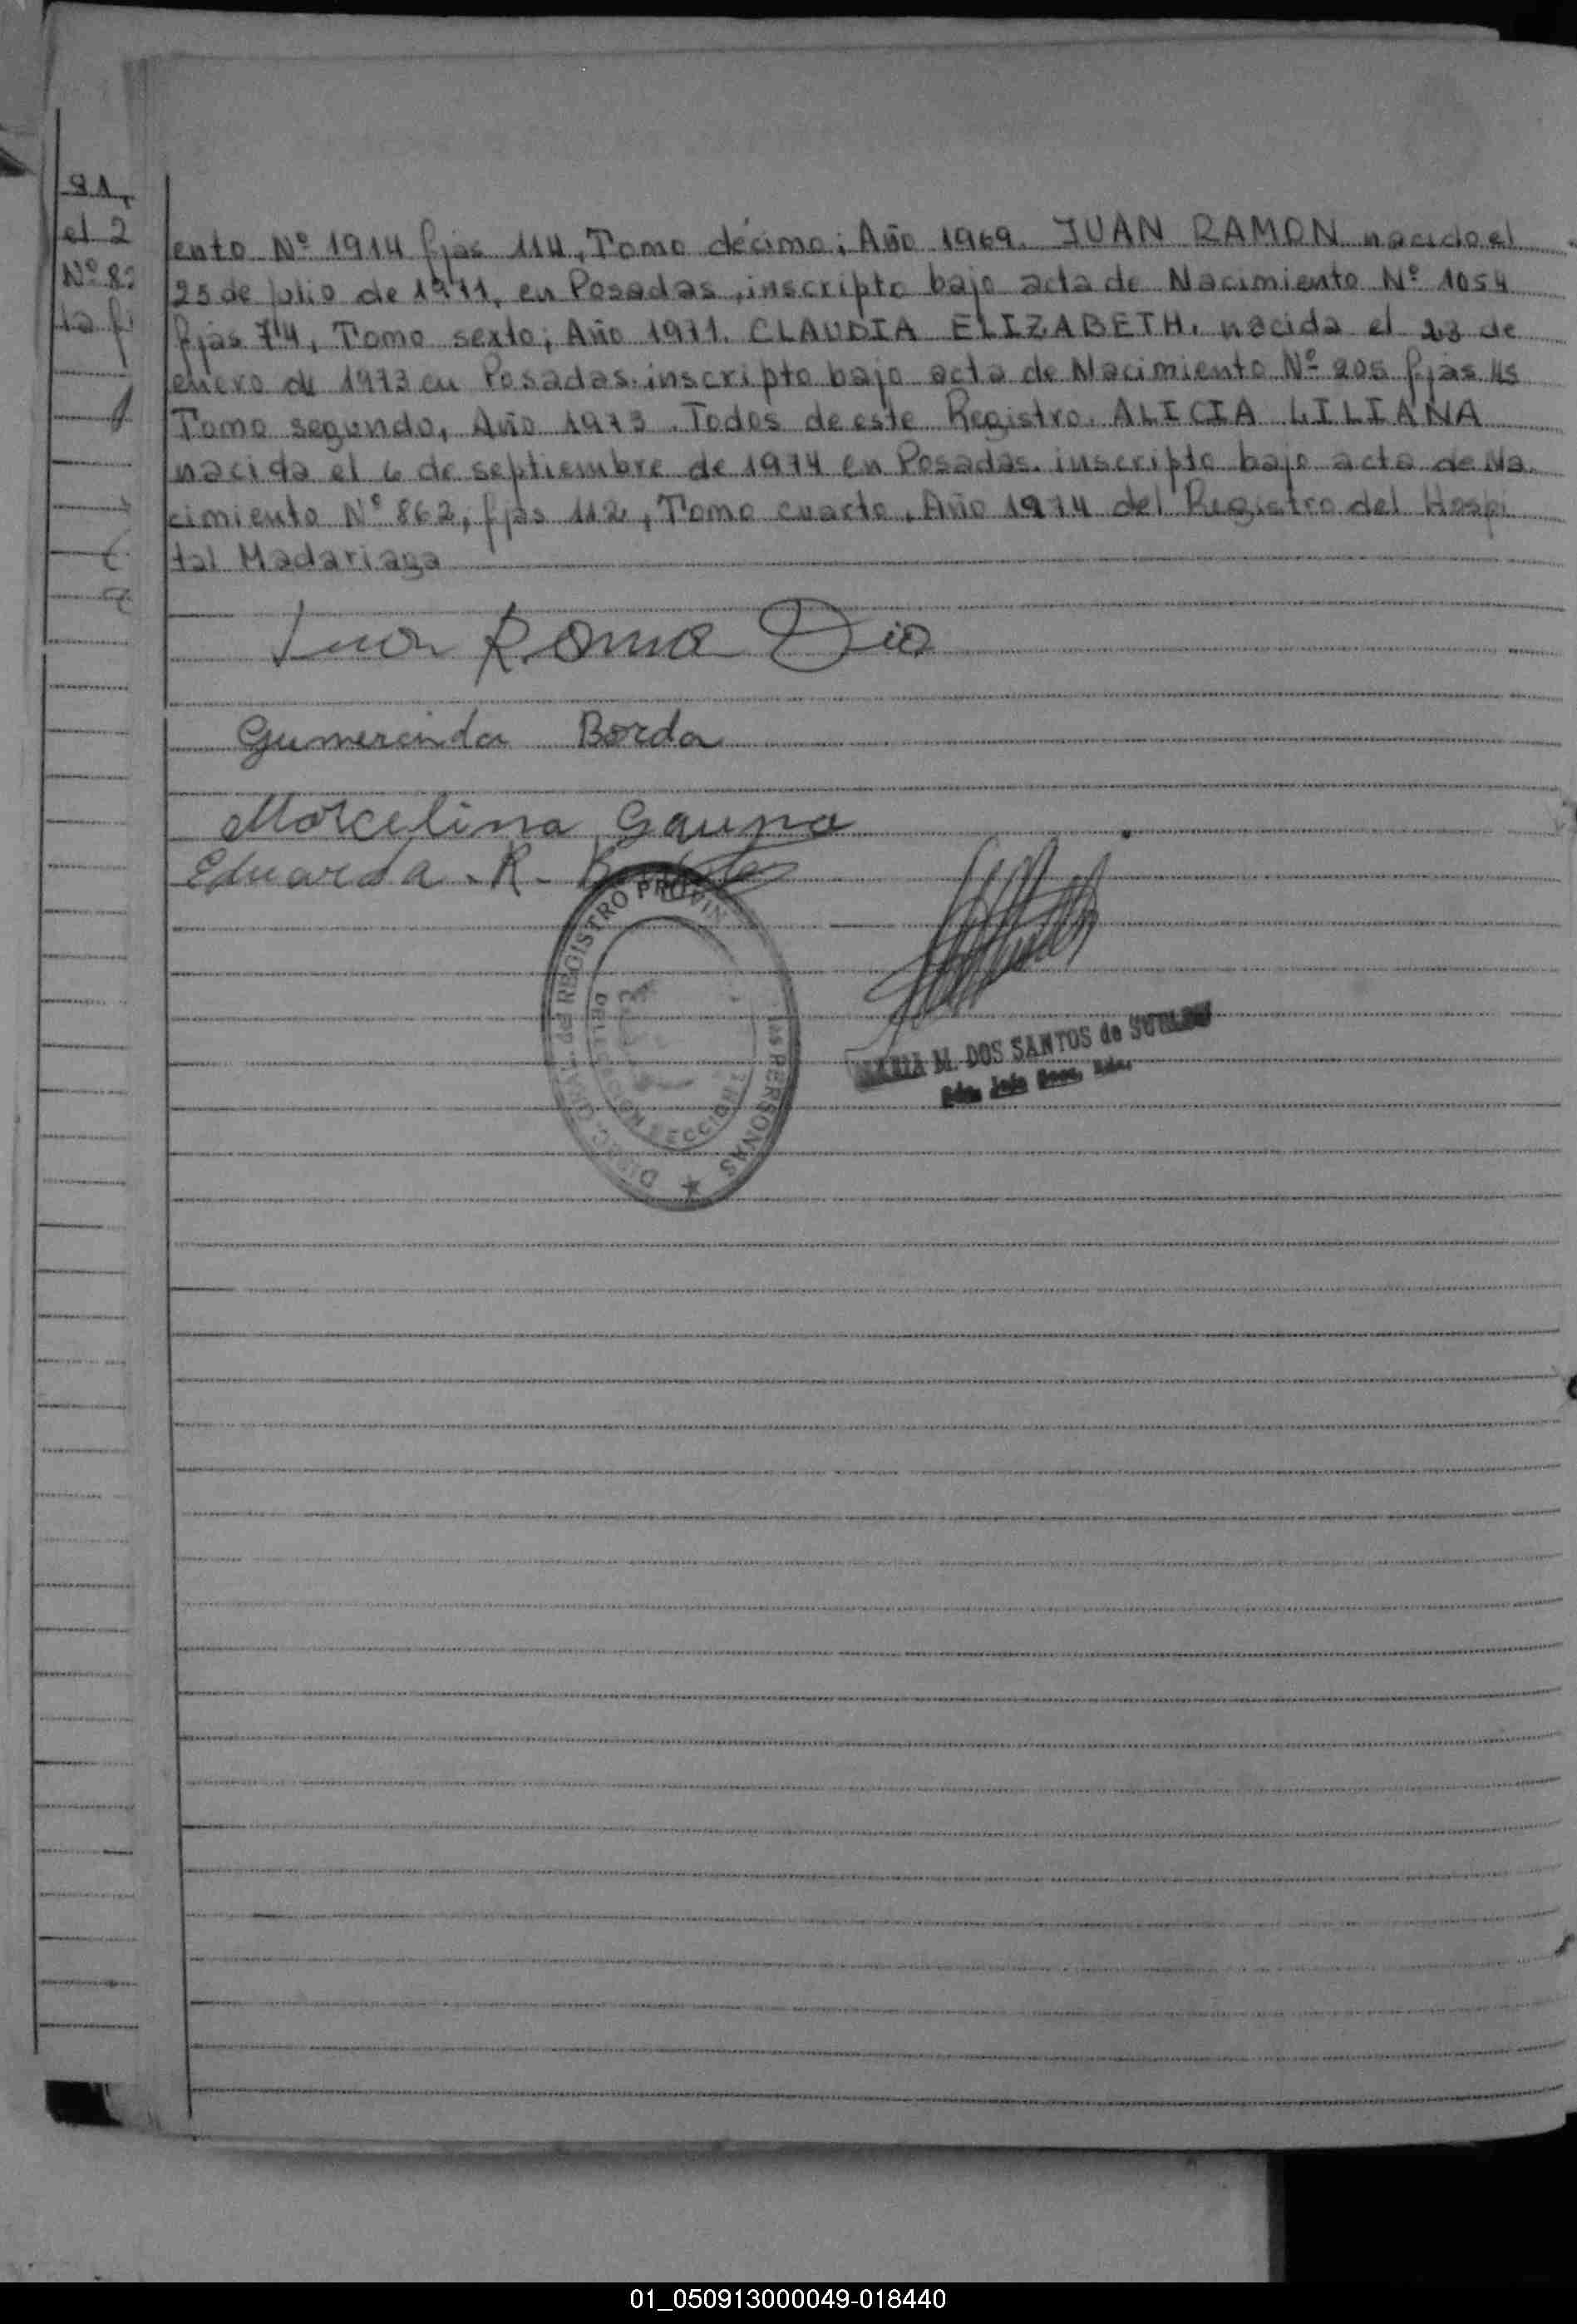 91,
el 2
Nº 82
ta fj
ento Nº 1914 fjas 114, Tomo décimo; Año 1969. JUAN RAMON nacido el
25 de julio de 1971, en Posadas, inscripto bajo acta de Nacimiento Nº 1054
fjas 74, Tomo sexto; Año 1971. CLAUDIA ELIZABETH, nacida el 23 de
enero de 1973 en Posadas, inscripto bajo acta de Nacimiento Nº 205 fjas 45
Tomo segundo, Año 1973. Todos de este Registro. ALICIA LILIANA
nacida el 6 de septiembre de 1974 en Posadas, inscripto bajo acta de Na.
cimiento Nº 862, fjas 112, Tomo cuarto, Año 1974 del Registro del Hospi
tal Madariaga
Juan Roma Dio
Gumercinda Borda
Marcelina Gauna
Eduarda R.
DIREC. GRAL. del REGISTRO PROVIN las PERSONAS
MARIA M. DOS SANTOS de
01_050913000049-018440